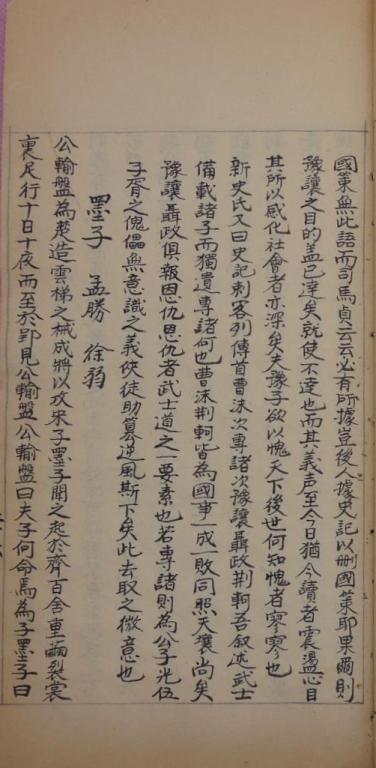 國策無此語而司馬貞云云必有所據豈後人據史記以刪國策耶果爾則
豫讓之目的蓋已達矣就使不達也而其義声至今日猶令讀者震盪心目
其所以感化社會者亦深矣夫豫子欲以愧天下後世何知愧者寥寥也
新史氏又曰史記刺客列傳首曹沫次專諸次豫讓聶政荆軻吾叙述武士
備載諸子而獨遺專諸何也曹沫荆軻皆為國事一成一敗同照天壤尚矣
豫讓聶政俱報恩仇恩仇者武士道之一要素也若專諸則為公子光伍
子胥之傀儡無意識之義俠徒助篡逆風斯下矣此去取之微意也
墨子 孟勝 徐弱
公輸盤為楚造雲梯之械成將以攻宋子墨子聞之起於齊百舍重繭裂裳
裹足行十日十夜而至於郢見公輸盤公輸盤曰夫子何命焉為子墨子曰